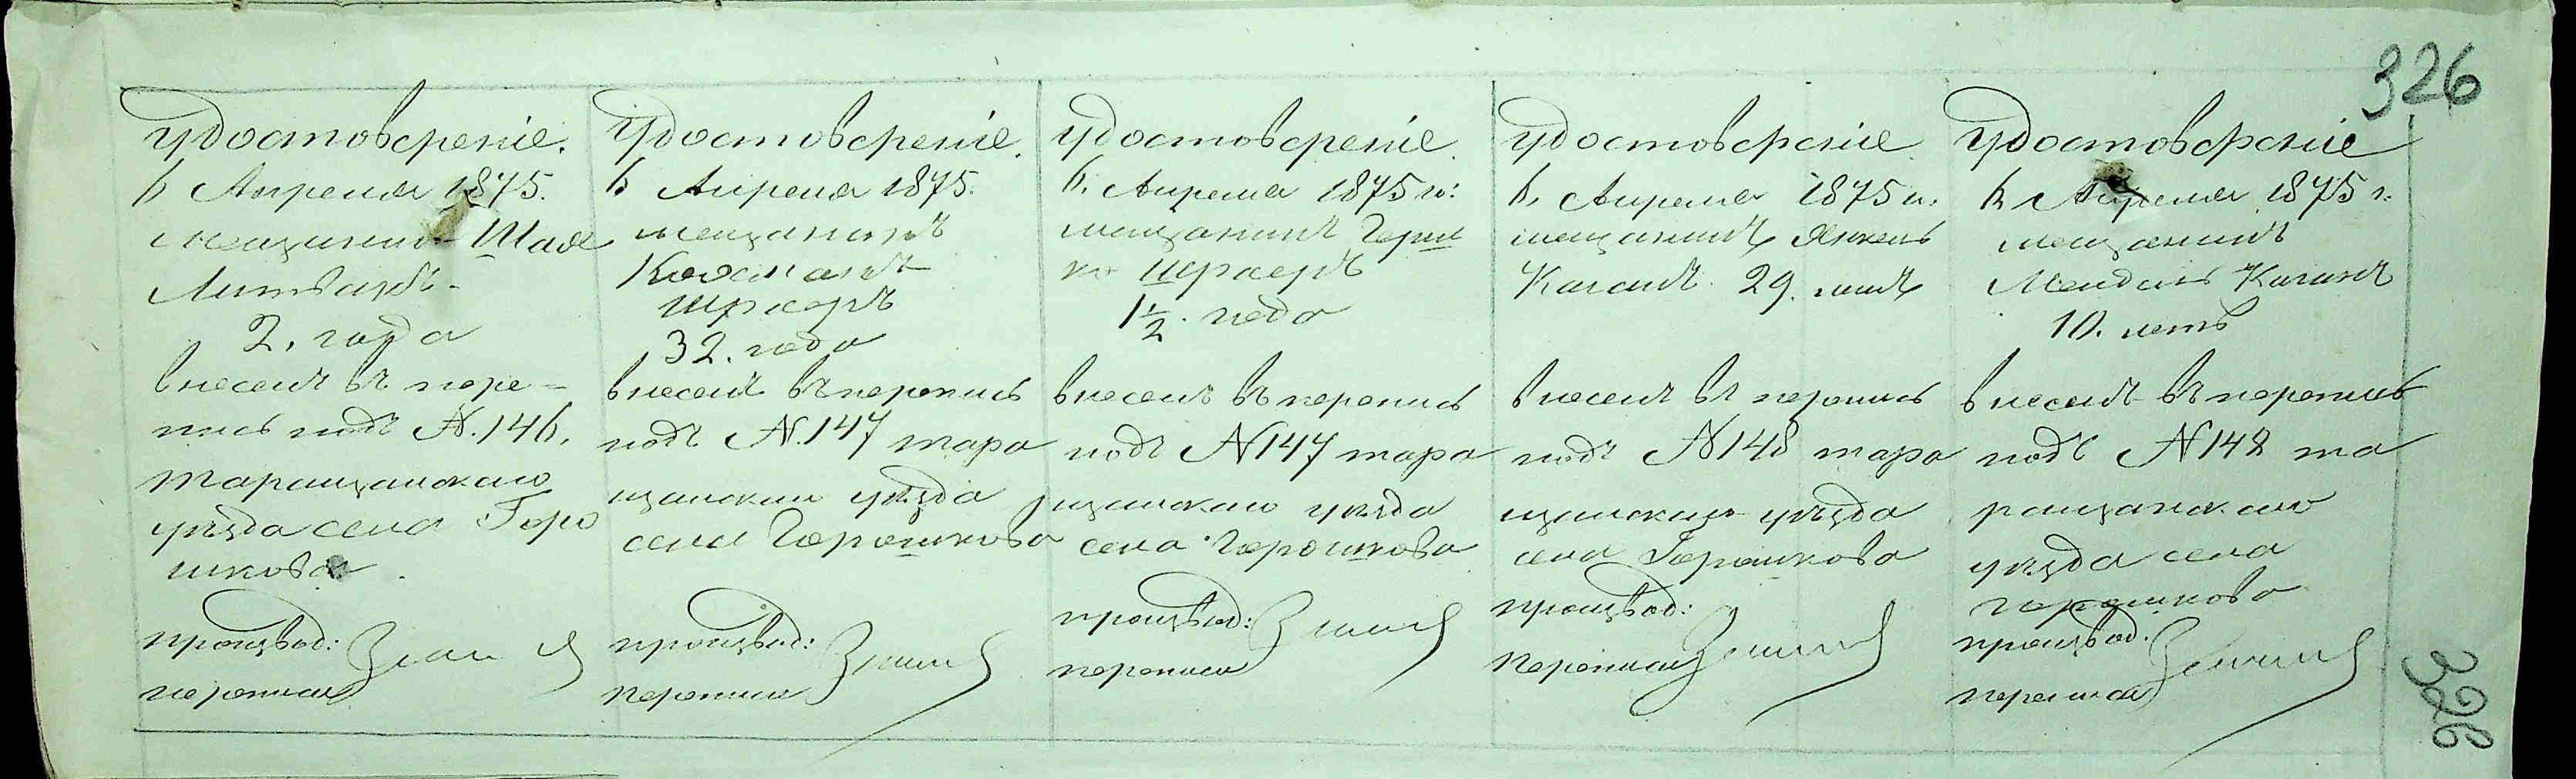 326
Удостоверенiе.
6 Апреля 1875.
мещанинъ Шая
Литвакъ.
2. года
внесенъ въ пере-
пись подъ №. 146.
таращанскаго
уѣзда села Горо
шкова.
производ:
переписи
Удостоверенiе.
6 Апреля 1875.
мещанинъ
шраеръ
32. года
внесенъ въ перепись
подъ №. 147 тара
щанскаго уѣзда
села Горошкова
производ:
переписи
Удостоверенiе.
6. Апреля 1875 го:
мещанинъ Герш
ко шраеръ
1 1/2. года
внесенъ въ перепись
подъ № 147 тара
щанскаго уѣзда
села Горошкова
производ:
переписи
Удостоверенiе
6. Апреля 1875 г.
мещанинъ Янкель
Каганъ. 29. летъ
внесенъ въ перепись
подъ № 148 тара
щанскаго уѣзда
села Горошкова
производ:
переписи
Удостоверенiе
6 Апреля 1875 г.
мещанинъ
Мендель Каганъ
10. летъ
внесенъ въ перепись
подъ № 148 та
ращанскаго
уѣзда села
горошкова
производ.
переписи
326